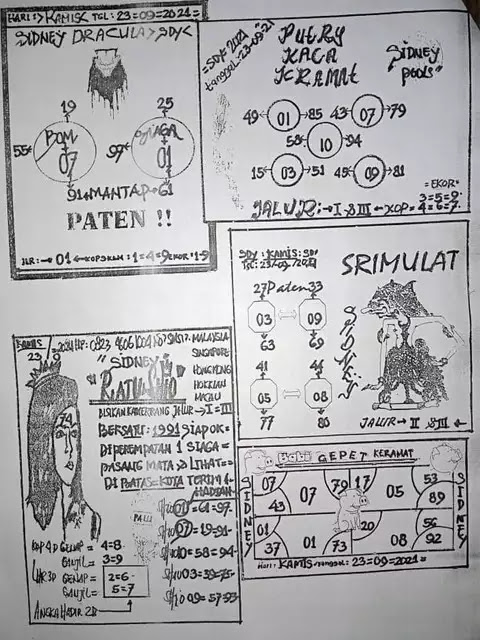 HARI:> KAMIS< TGL: 23=09=2021=
SIDNEY DRACULA> SDY<
19 25
55 BOM 07
97 SIAGA 01
91 MANTAP 61
PATEN !!
01
=SDY 2021
tanggal-23-09-21
PUTRY
KACA
KRAMAT
SIDNEY
POOLS"
49 01 85 43 07 79
58 10 94
15 03 51 45 09 81
=EKOR=
3=5=9
JALUR:→I & III ← KOP= 4=6=7
SDY: KAMIS: SDY
TGL: 23/09/2021
SRIMULAT
27 Paten 33
03 09
63 69
41 44
05 08
77 80
SIDNEY
JALUR→ II & III
KAMIS
23 9
=2021 HP: 0823
MALAYSIA
SINGAPORE
HONGKONG
HOKKIAN
MACAU
"SIDNEY"
"RATU SHIO"
74
JALUR→I=III
BERSATU: 1991 SIAPOK=
DIPEREMPATAN 1 SIAGA=
PASANG MATA > LIHAT=
DI BATAS=KOTA TERIMA
HADIAH
PALU
SHIO 01= 61=97
SHIO 07= 19=91
SHIO 10= 58=94
SHIO 03= 39=75
SHIO 09= 57=93
KOP 4D GENAP = 4=8
GANJIL = 3=9
GENAP = 2=6
GANJIL = 5=7
ANGKA HADIR 2D
BABI GEPET KERAMAT
SIDNEY
07 43 07 79 17 05 53 89
01 37 01 73 20 08 56 92
SIDNEY
HARI: KAMIS=tanggal: 23=09=2021=